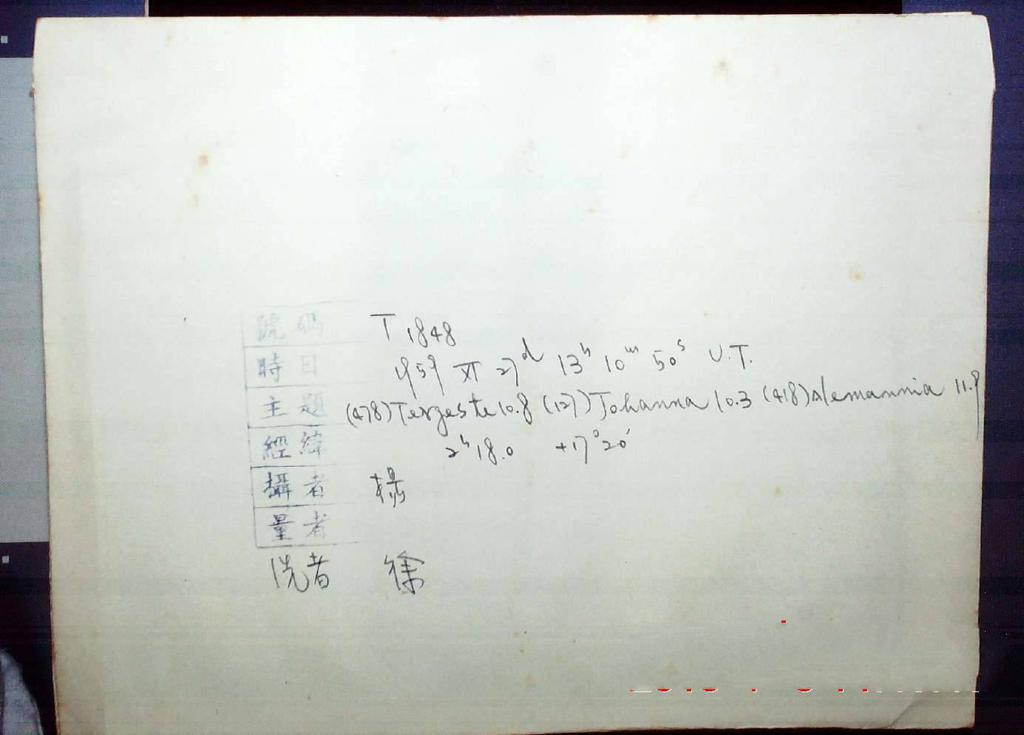 號碼 T 1848
時日 1959 XI 27d 13h 10m 50s U.T.
主題 (478) Tergeste 10.8 (127) Johanna 10.3 (418) Alemannia 11.9
經緯 2h 18.0 +17°20′
攝者 楊
量者
洗者 徐